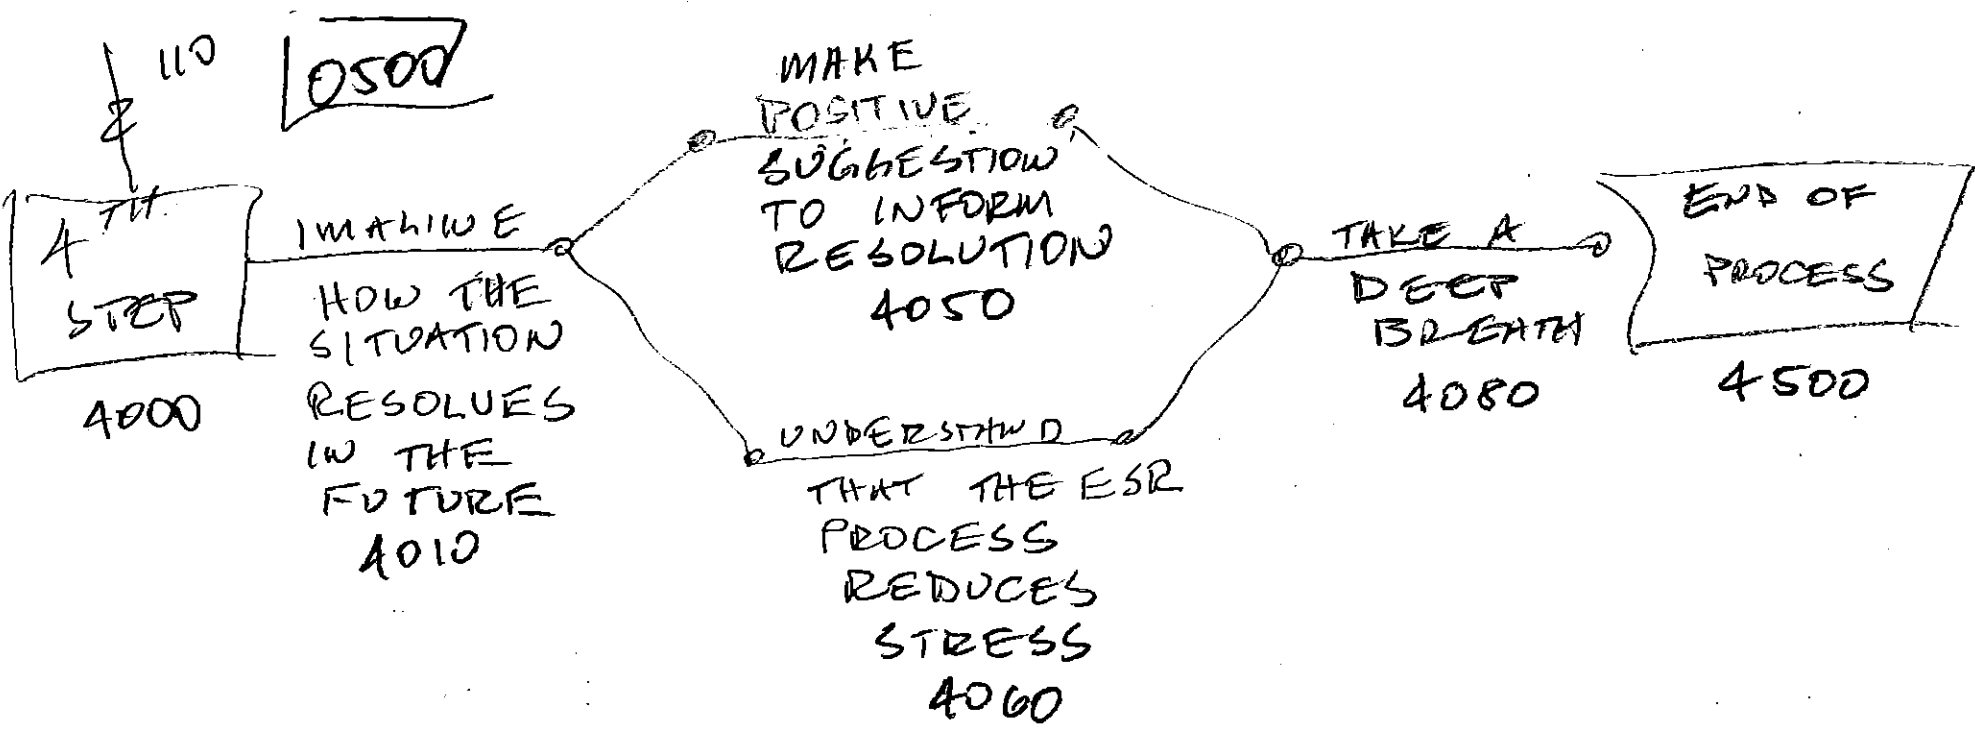 110
0500
4TH
STEP
4000
IMAGINE
HOW THE
SITUATION
RESOLVES
IN THE
FUTURE
4010
MAKE
POSITIVE
SUGGESTION
TO INFORM
RESOLUTION
4050
UNDERSTAND
THAT THE ESR
PROCESS
REDUCES
STRESS
4060
TAKE A
DEEP
BREATH
4080
END OF
PROCESS
4500